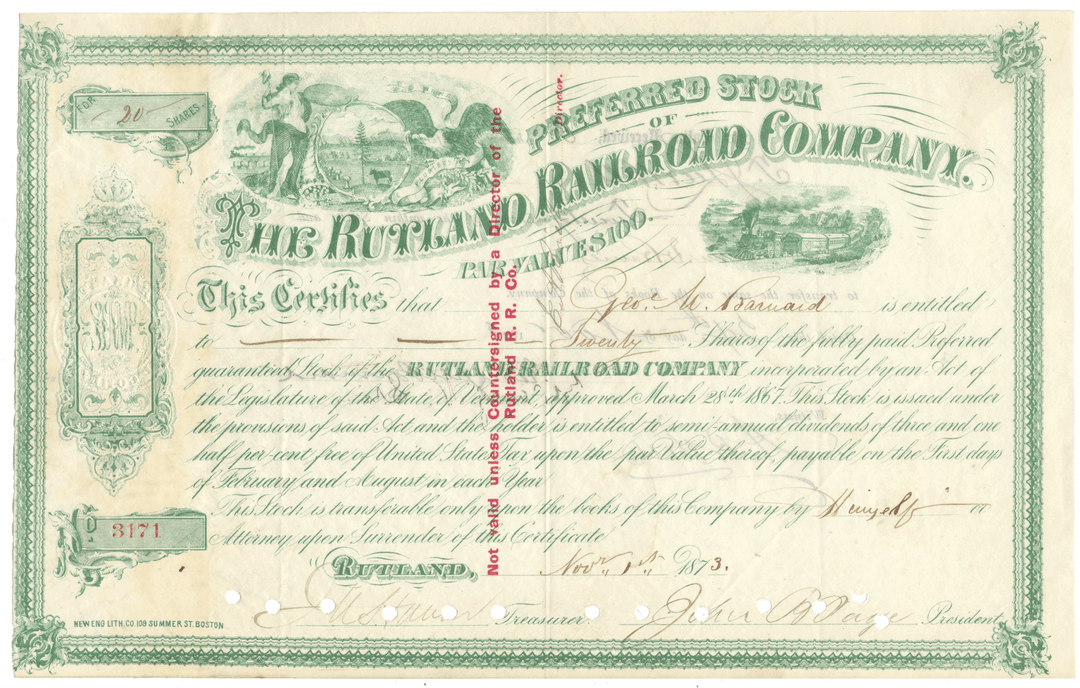 FOR 20 SHARES
PREFERRED STOCK
OF
THE RUTLAND RAILROAD COMPANY.
PAR VALUE $100.
This Certifies that Geo. W. Barnard is entitled
to Twenty Shares of the fully paid Preferred
guaranteed Stock of the RUTLAND RAILROAD COMPANY incorporated by an Act of
the Legislature of the State of Vermont, approved March 28th 1867. This Stock is issued under
the provisions of said Act and the holder is entitled to semi-annual dividends of three and one
half per cent free of United States Tax upon the par Value thereof, payable on the First days
of February and August in each Year
This Stock is transferable only upon the books of this Company by Himself or
Attorney upon Surrender of this Certificate
P 3171
RUTLAND, Novr 1st 1873.
Treasurer. John B Page President
NEW ENG LITH. CO. 109 SUMMER ST. BOSTON
Not valid unless Countersigned by a Director of the
Rutland R. R. Co.
Director.